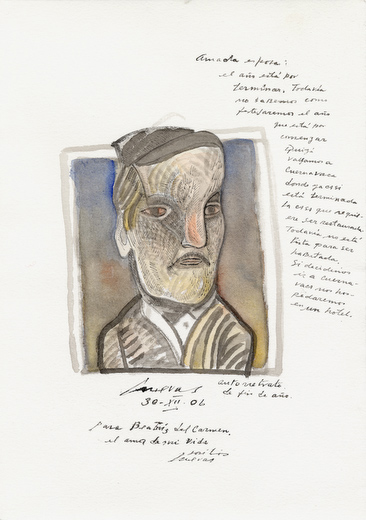 Amada esposa:
el año está por
terminar. Todavía
no sabemos como
festejaremos el año
que está por
comenzar
Quizá
vayamos a
Cuernavaca
donde ya casi
está terminada
la casa que requi-
ere ser restaurada.
Todavía no está
lista para ser
habitada.
Si decidimos
ir a Cuerna-
vaca nos hos-
pedaremos
en un hotel.
Cuevas
30-XII-06
autorretrato
de fin de año.
Para Beatriz del Carmen,
el amor de mi vida
José Luis
Cuevas